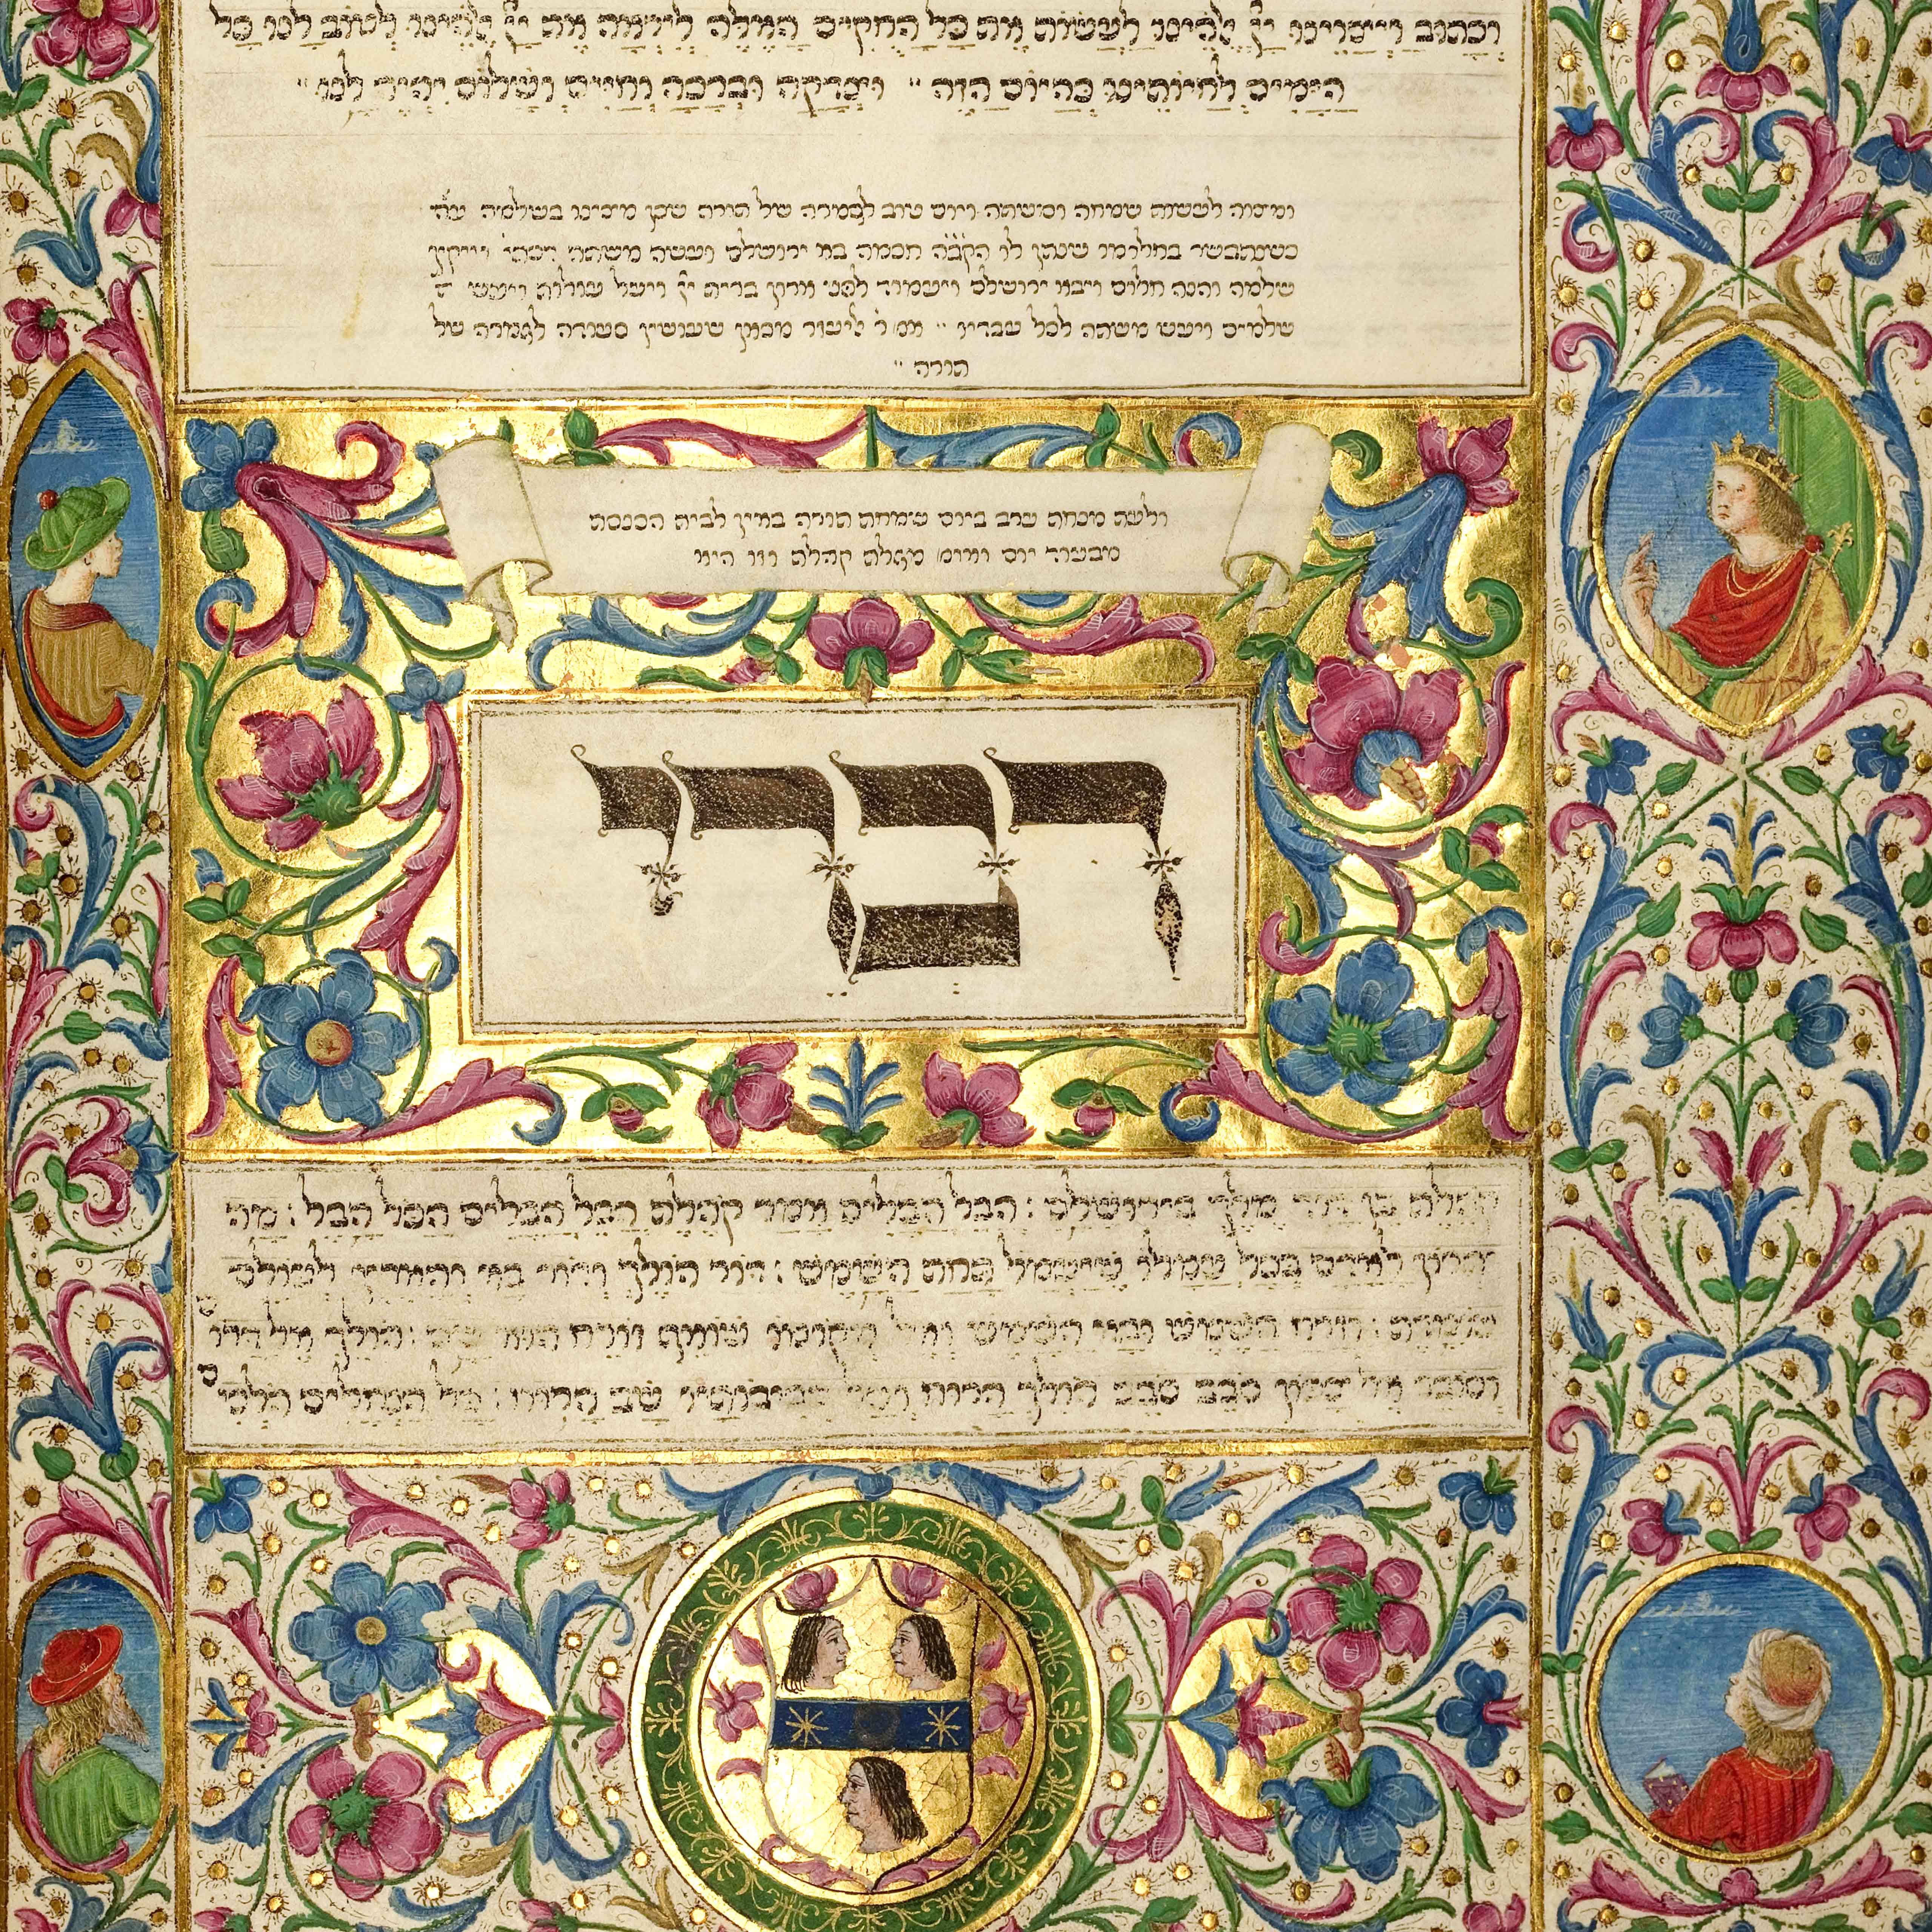 וכתוב ויצוינו יי אלהינו לעשות את כל החקים האלה ליראה את יי אלהינו לטוב לנו כל
הימים לחיותינו כהיום הזה וצדקה וברכה וחיים ושלום יהיה לנו
ומצוה לעשות שמחה ומשתה ויום טוב לגמירה של תורה שכן מצינו בשלמה
כשנתבשר בחלומו שנתן לו הקבה חכמה בא ירושלם ועשה משתה וייקץ
שלמה והנה חלום ויבוא ירושלם ויעמוד לפני ארון ברית יי ויעל עולות ויעש
שלמים ויעש משתה לכל עבדיו אלעזר מכאן שעושין סעודה לגמרה של
תורה
ולעת מנחת ערב ביום שמחת תורה באין לבית הכנסת
מבעוד יום מגלת קהלת וזו היא
דברי
קהלת בן דוד מלך בירושלם : הבל הבלים אמר קהלת הבל הבלים הכל הבל : מה
יתרון לאדם בכל עמלו שיעמל תחת השמש : דור הולך ודור בא והארץ לעולם
עומדת : וזרח השמש ובא השמש ואל מקומו שואף זורח הוא שם : הולך אל דרום
וסובב אל צפון סובב סובב הולך הרוח ועל סביבותיו שב הרוח : כל הנחלים הלכים